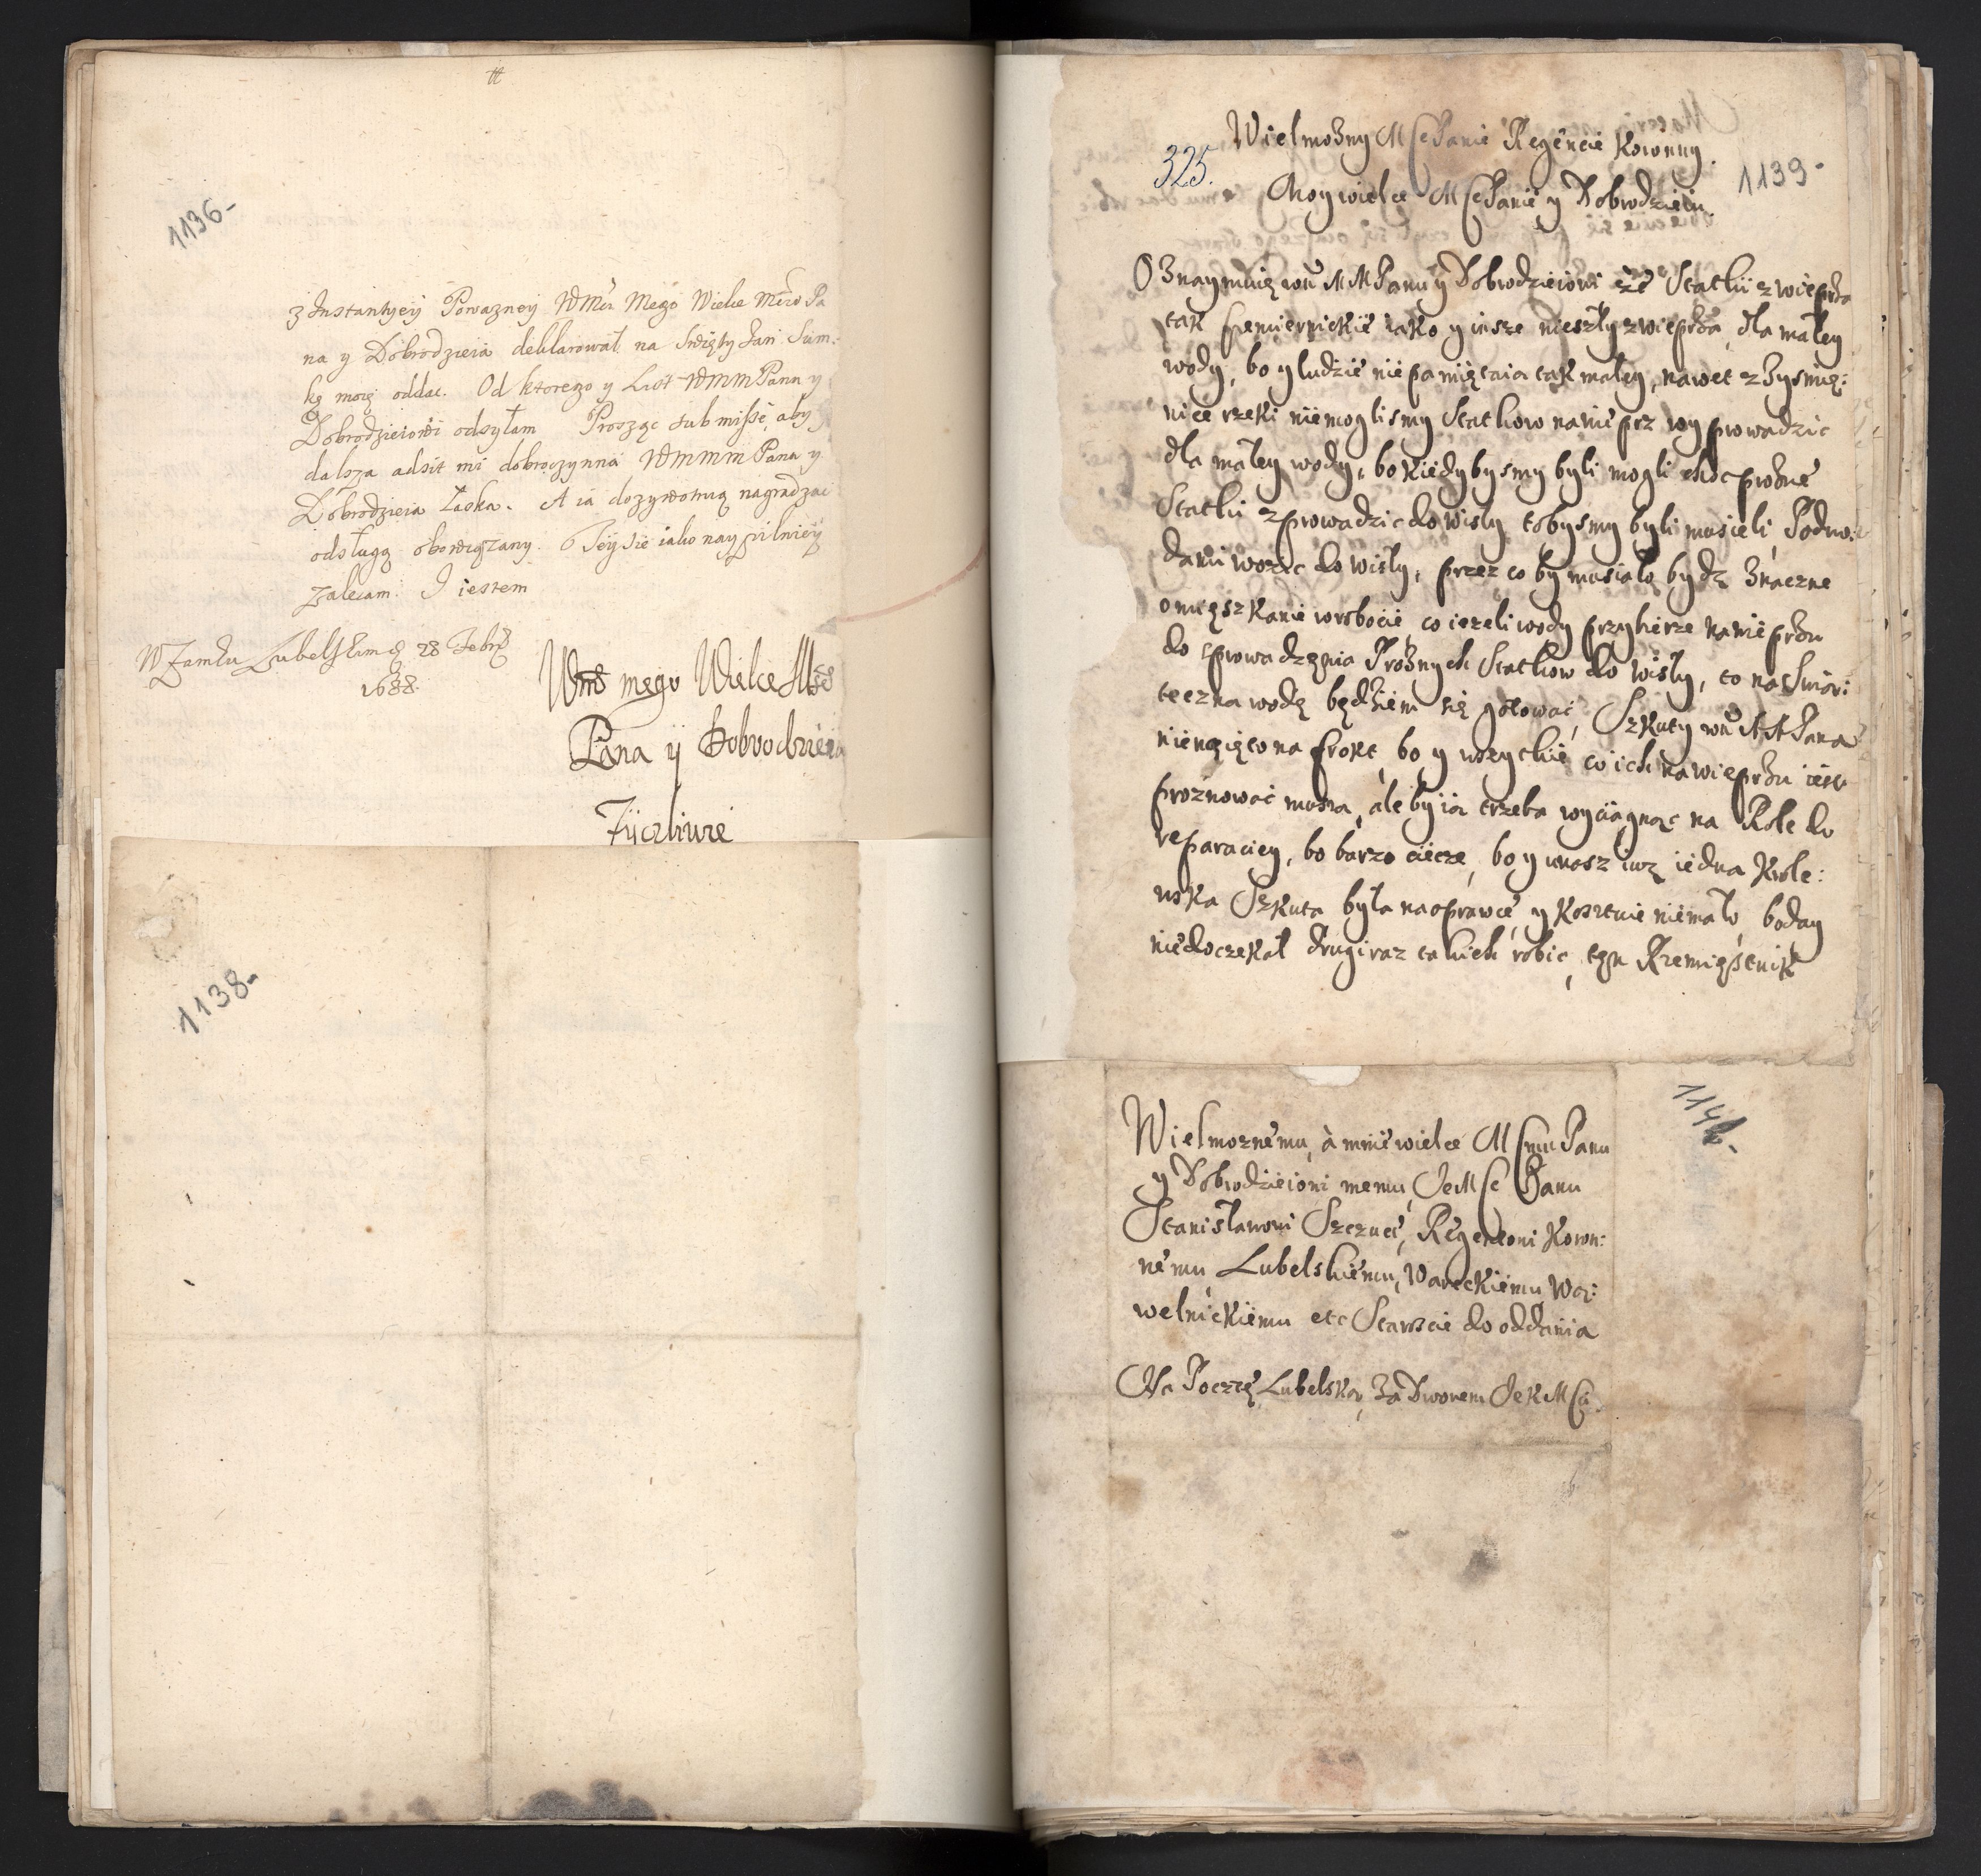 tt
1136-
z Instantyey Powazney WMci Mego Wielce Mciwo Pa
na y Dobrodzieia deklarował na Swięty Jan Sum:
kę moię oddac. Od ktorego y List WMM Pana y
Dobrodzieiowi odsyłam Prosząc submisse, aby
dalsza adsit mi dobroczynna WMMM Pana y
Dobrodzieia Łaska. A ia dozywotnią nagradzac
odsługą obowiązany. Teÿ sie iako naypilnieÿ
zalecam. I iestem
W Zamku Lubelskim 28 Febr
1688.
Wm mego Wielce Mści
Pana ÿ Dobrodzieia
Zÿczliwie
1138-
Wielmozny MscPanie Regencie Koronny.
325.
1139-
Moy wielce MscPanie y Dobrodzieiu.
Oznaymuię wm MMPanu y Dobrodzieiowi ze Statki z wieprza
tak siemiernickie iako y insze nieszły z wieprza, dla małey
wody, bo y ludzie nie pamiętaia tak małey, nawet z Bysmię:
nice rzeki niemoglismy Statkow na wieprz wyprowadzic
dla małey wody, bo kiedybysmy byli mogli choc prozne
Statki zprowadzic do wisly tobysmy byli musieli, Podwo:
dami wozic do wisły, przez co by musiało bydz znaczne
omięszkanie w robocie co iezeli wody przybierze na wieprzu
do sprowadzęnia Proznych Statkow do wisły, to na Swią:
teczna wodę będziem się gotowac, Szkuty wm MMPana
nie wzięto na frokt, bo y wszytkie co ich na wieprzu iest
proznowac musza, ale by ią trzeba wyciągnąc na Role do
reparaciey, bo barzo ciecze, bo y u nasz iuz iedna Krole:
wska Szkuta była na oprawie, y kosztuie niemało, boday
niedoczekał drugi raz takich robic, tęn Rzemięstnik
1141-
Wielmoznemu, à mnie wielce Mscmu Panu
y Dobrodzieiowi memu JeMsc Panu
Stanisławowi Szczuce, Regentowi Koron:
nemu Lubelskiemu, Wareckiemu Wą:
welnickiemu etc Staroscie do oddania
Na Pocztę Lubelską, za Dworem JeKMsci.